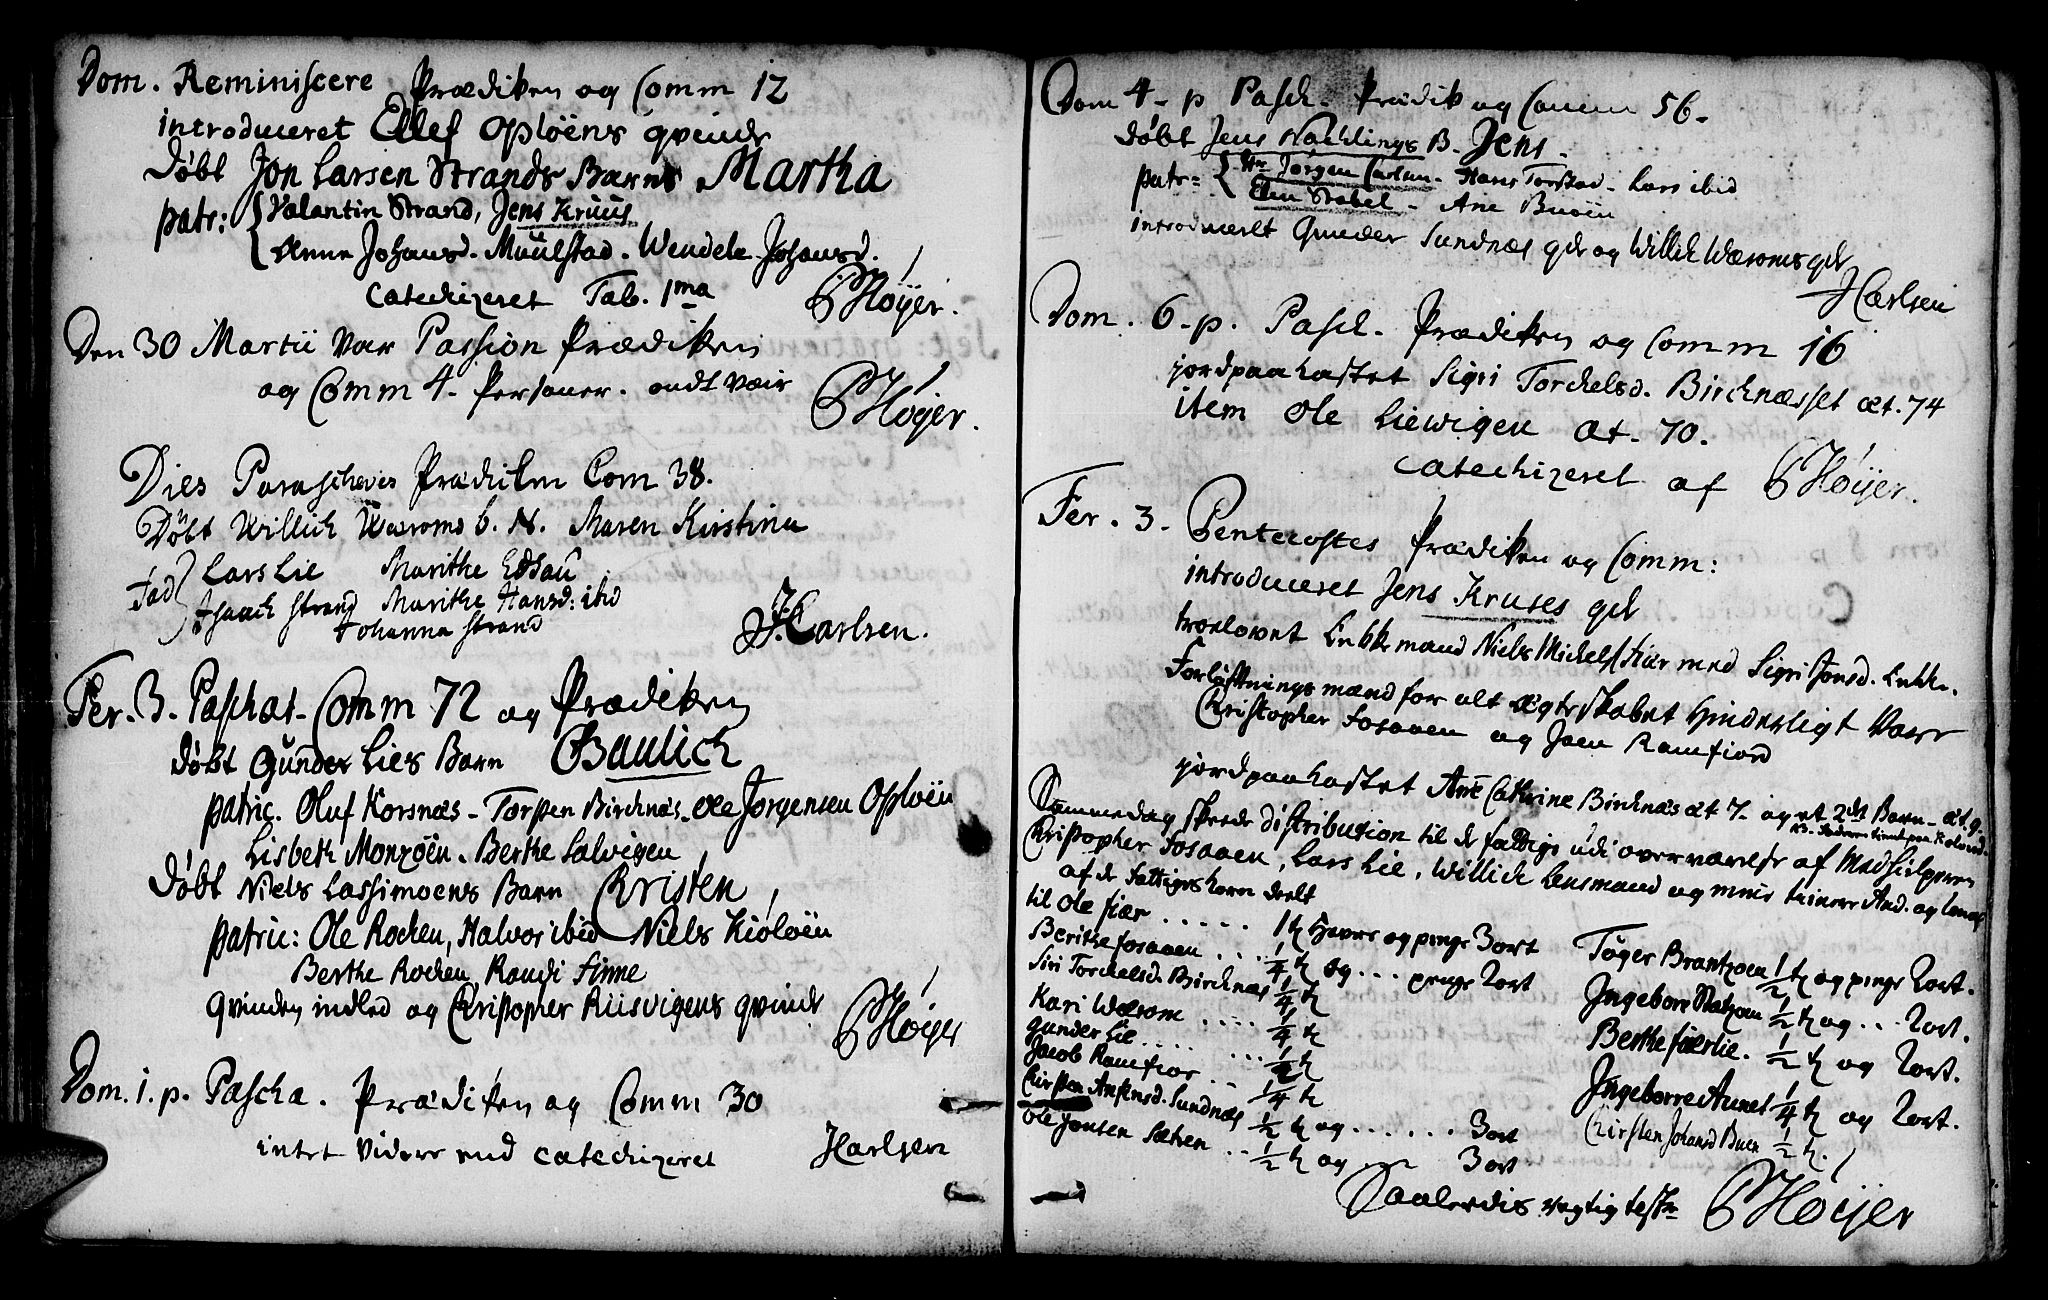 Dom. Reminiscere Prædiken og Comm 12
introduceret Ellef Opløens qvinde
Døbt Jon Larsen Strands Barns Martha
patr: Valantin Strand, Jens Kruus
Anne Johansd. Muulstad. Wendele Johansd.
Catechizeret Tab. 1ma PHøyer.
Den 30 Martii var Passion Prædiken
og Comm 4. Personer. ondt væir PHøyer.
Dies Parascheves Prædiken Com 38.
Døbt Willich Wæroms b. N. Maren Kirstina
Fad Lars Lie Marithe Edsau
Isaach Strand Marithe Hansd: ibid
Johanna Strand
J. Carlsen.
Fer. 3. Paschat. Comm 72 og Prædiken
Døbt Gunder Lies Barn Baulich
patric. Oluf Korsnæs - Torsten Birchnæs. Ole Jorgensen Opløen
Lisbeth Monzøen. Berthe Salvigen
Døbt Niels Lassimoens Barn Christen
patric: Ole Rochen, Halvor ibid Niels Kioløen
Berthe Rochen, Randi Finne
Qvinden indled og Christopher Riisvigens qvinde PHøyer
Dom. 1. p. Pascha. Prædiken og Comm 30
intet videre end catechizeret JCarlsen
Dom 4 - p Pasch. Prædik og Comm 56.
Døbt Jens B. Jens.
patr: Hr Jørgen Carlsen. Hans Torstad. Lars ibid
Elen Stabel. Ane Buøen
introduceret Gunder Sundnæs qde og Willich Wæroms qde
JCarlsen
Dom. 6. p. Pasch. Prædiken og Comm 16
jordpaakastet Sigri Torchelsd. Birchnæsset æt. 74
item Ole Liewigen æt. 70.
Catechizeret af PHøyer.
Fer. 3. Pentecostes Prædiken og Comm:
introduceret Jens Kruses qde
troelovet Enkkemand Niels Michelsen med Sigri Jonsd. Enkke.
Forløftnings mænd for alt ægteskabet Hinderligt Vare
Christopher Fosaaen og Joen Ramfiord
jordpaakastet Ane Cathrine Birchnæs æt 7. og et 2det Barn æt. 9.
Samme dag skeede distribution til de fattige udi overværelse af Medhielperen
Christopher Fosaaen, Lars Lie, Willich Lensmand og And. og
af de Fattiges korn deelt
til Ole fiær ..... 1 ℔ Havre og penge 3 ort
Berithe fosaaen .... 1/4 ℔ og ... penge 2 ort
Siri Torchelsd. Birchnæs 1/4 ℔
Kari Wærom .... 1/4 ℔
gunder Lie .... 1/2 ℔
Jacob Ramfior .. 1/4 ℔
Chirsten Sundnæs 1/2 ℔ og ...... 3 ort
Ole Jonsen Sæten .. 1/2 ℔ og - 3 ort
Tøger Brantzoen 1/2 ℔ og penge 2 ort.
Ingeborre 1/2 ℔ og ... 2 ort.
Berthe færlie. 1/2 ℔ og 2 ort.
Ingeborre Aunet 1/4 ℔ og 2 ort.
Chirsten Johansd Buen 1/2 ℔.
Saaledis rigtig PHøyer